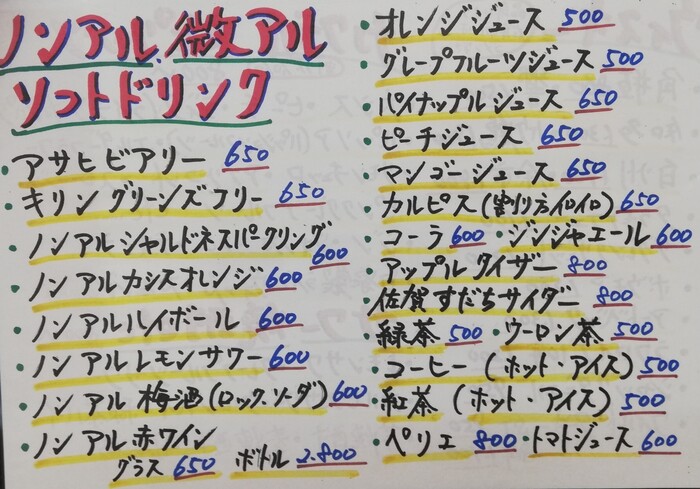 ノンアル.微アル
ソフトドリンク
・アサヒビアリー 650
・キリングリーンズフリー 650
・ノンアルシャルドネスパークリング
600
・ノンアルカシスオレンジ 600
・ノンアルハイボール 600
・ノンアルレモンサワー 600
・ノンアル梅酒(ロック.ソーダ) 600
・ノンアル赤ワイン
グラス 650 ボトル 2.800
・オレンジジュース 500
・グレープフルーツジュース 500
・パイナップルジュース 650
・ピーチジュース 650
・マンゴージュース 650
・カルピス(割り方イロイロ) 650
・コーラ 600 ・ジンジャエール 600
・アップルタイザー 800
・佐賀すだちサイダー 800
・緑茶 500 ・ウーロン茶 500
・コーヒー (ホット・アイス) 500
・紅茶 (ホット・アイス) 500
・ペリエ 800 ・トマトジュース 600